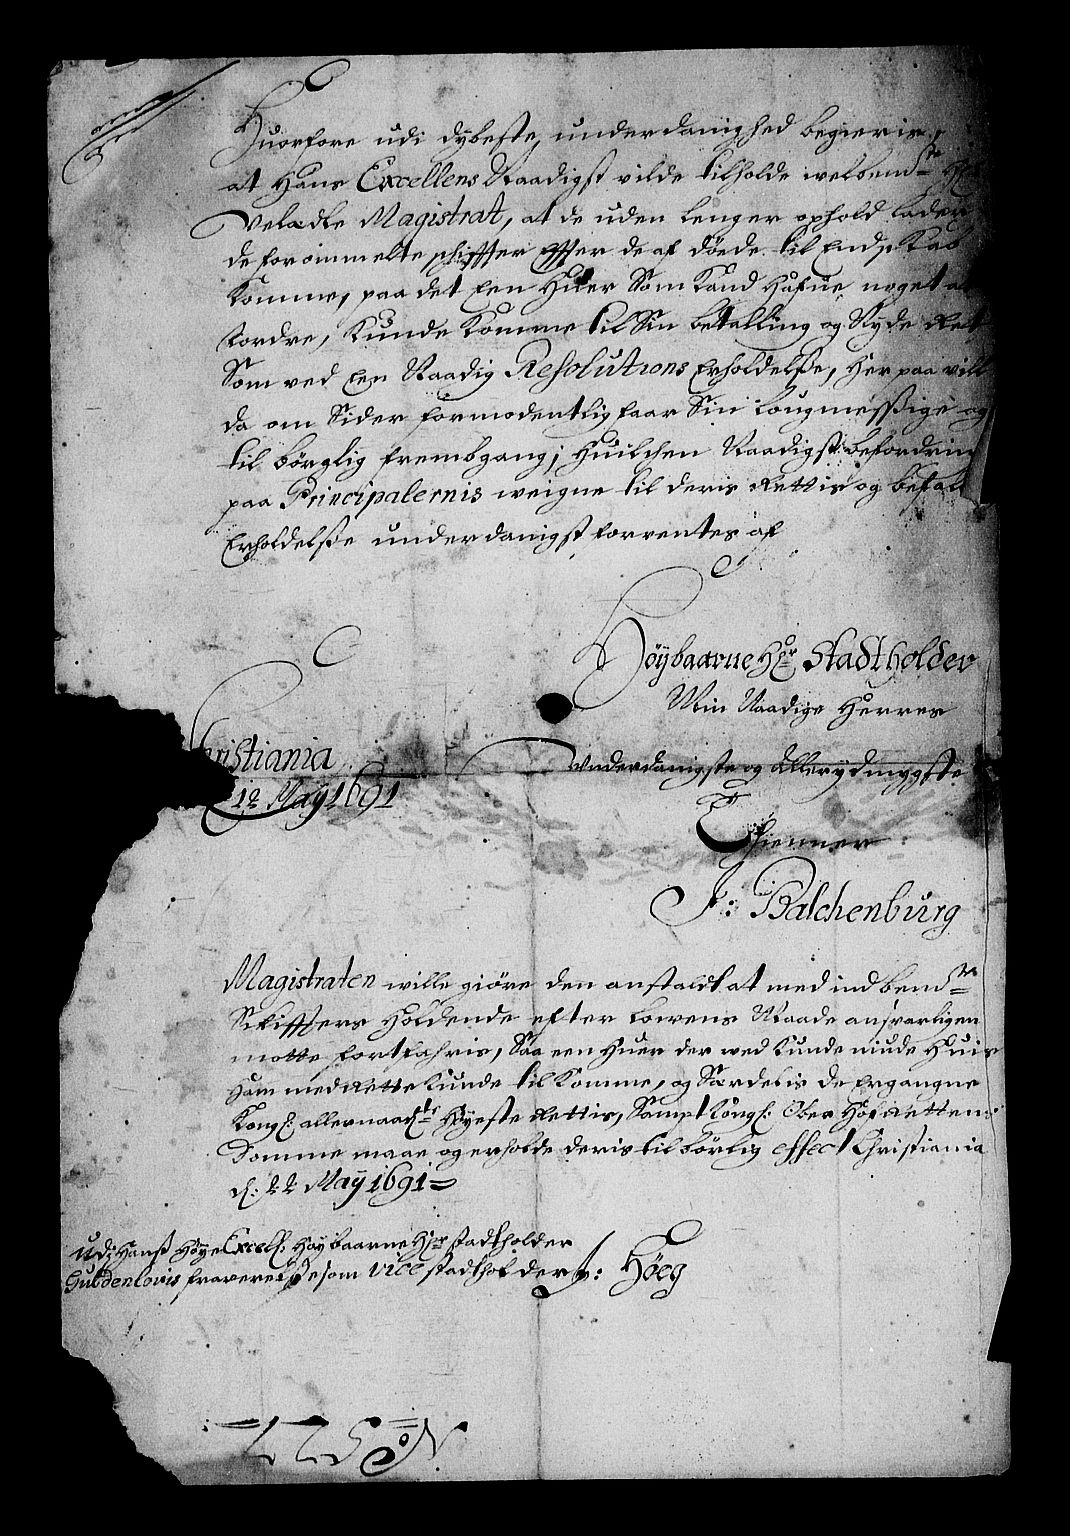 Huorfore udi dybeste underdanighed begieris,
at Hans Excellens Naadigst vilde tilholde welbemte
Velædle Magistrat, at de uden lenger ophold lader
de forommelte schiffter effter de af döede til Endskab
Komme, paa det Een Huer Som Kand Hafue noget at
fordre, Kunde Komme til Sin betalling og Nyde Ret
Som ved Een Naadig Resolutions Erholdelsse, Her paa vill
da om Sider formodentlig faar Sin lougmessige og
til börglig frembgang; Huilchen Naadigst befordrin
paa Principalernis weigne til deris Rettis og betal
Erholdelsse underdanigst forventes af
Höybaarne Hr Stadtholder
Min Naadige Herres
Christiania
12 May 1691
Underdanigste og allerydmygste
Thienner
J: Balchenburg
Magistraten wille giöre den anstaldt at med indbemte
Skiffters Holdende efter Lowens Maade ansvarligen
motte fortfahris, Saa een Huer der wed Kunde niude Huis
Ham med Rette Kunde tilKomme, og Særdelis de Ergangne
Kongl: allernaadte Höyeste Rettis, Sampt Kongl: Ober Hof Rettens
Domme maae og erholde deris tilbörlig effect Christiania
d: 22 May 1691
Udi Hanss Höye Excell: Höybaarne Hr Stadtholder
Guldenlöwis fraverelsse som Vice Stadtholder
J: Höeg